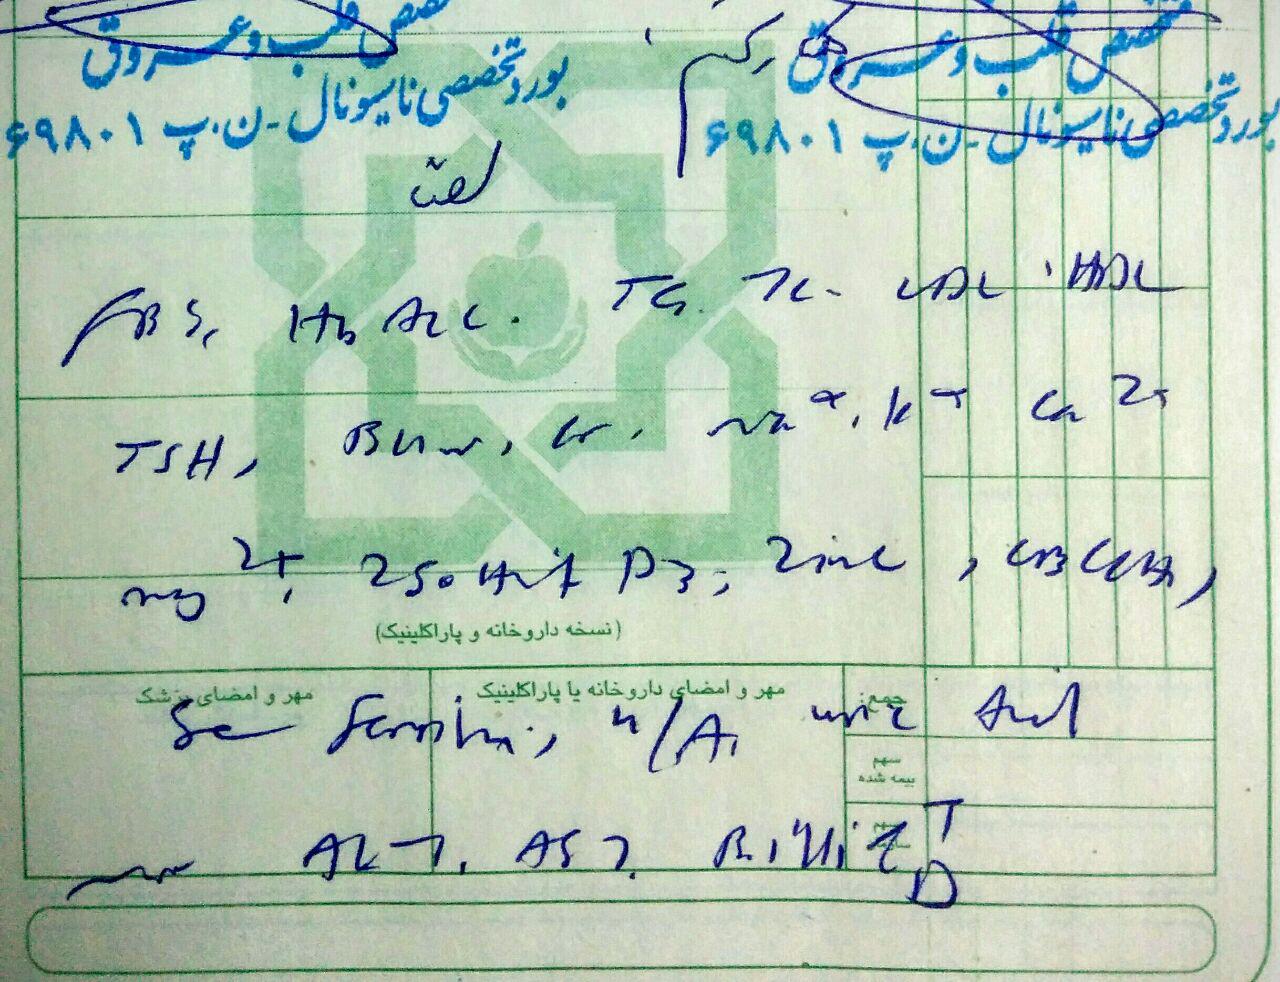 متخصص قلب و عروق
بورد تخصصی ناسیونال - ن.پ ۶۹۸۰۱
متخصص قلب و عروق
بورد تخصصی ناسیونال - ن.پ ۶۹۸۰۱
FBS, HbA1c. TG. TC. LDL, HDL
TSH, BUN, Cr, Na+, K+ Ca 2+
Mg 2+, 25OH Vit D3, Zinc, CBC
(نسخه داروخانه و پاراکلینیک)
مهر و امضای پزشک
مهر و امضای داروخانه یا پاراکلینیک
جمع:
Se Ferritin, U/A, Uric Acid
سهم
بیمه شده
ALT, AST, Billi T
D